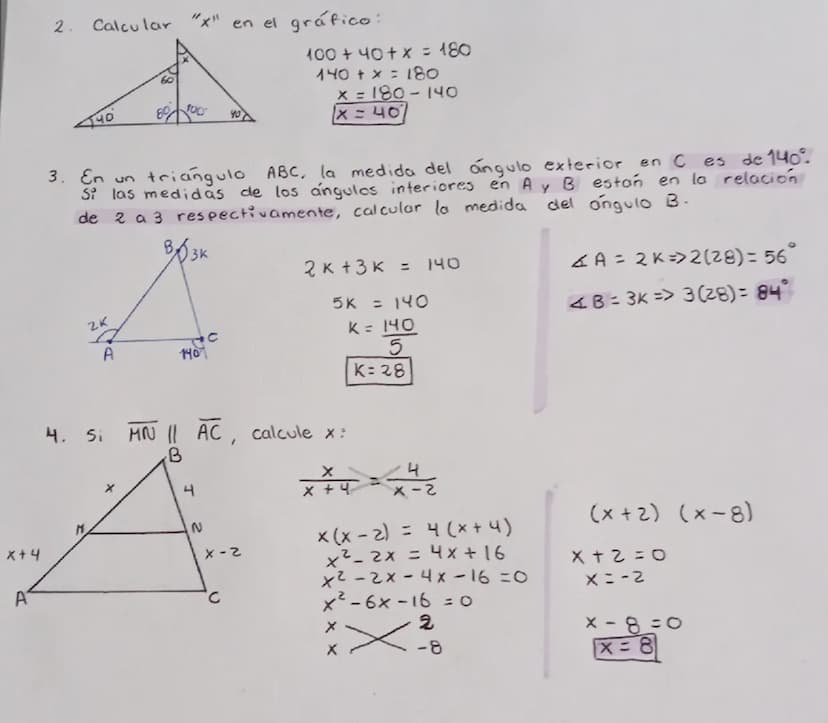 2. Calcular "x" en el gráfico:
x
60
40
80°
100°
40
100 + 40 + x = 180
140 + x = 180
x = 180 - 140
x = 40°
3. En un triángulo ABC, la medida del ángulo exterior en C es de 140°.
Si las medidas de los ángulos interiores en A y B están en la relación
de 2 a 3 respectivamente, calcular la medida del ángulo B.
B
3K
2K
A
140°
C
2K + 3K = 140
5K = 140
K = 140/5
K = 28
∡A = 2K => 2(28) = 56°
∡B = 3K => 3(28) = 84°
4. Si MN || AC, calcule x:
B
x
4
M
N
x+4
x-2
A
C
x/x+4 = 4/x-2
x(x-2) = 4(x+4)
x² - 2x = 4x + 16
x² - 2x - 4x - 16 = 0
x² - 6x - 16 = 0
x 2
x -8
(x+2) (x-8)
x + 2 = 0
x = -2
x - 8 = 0
x = 8